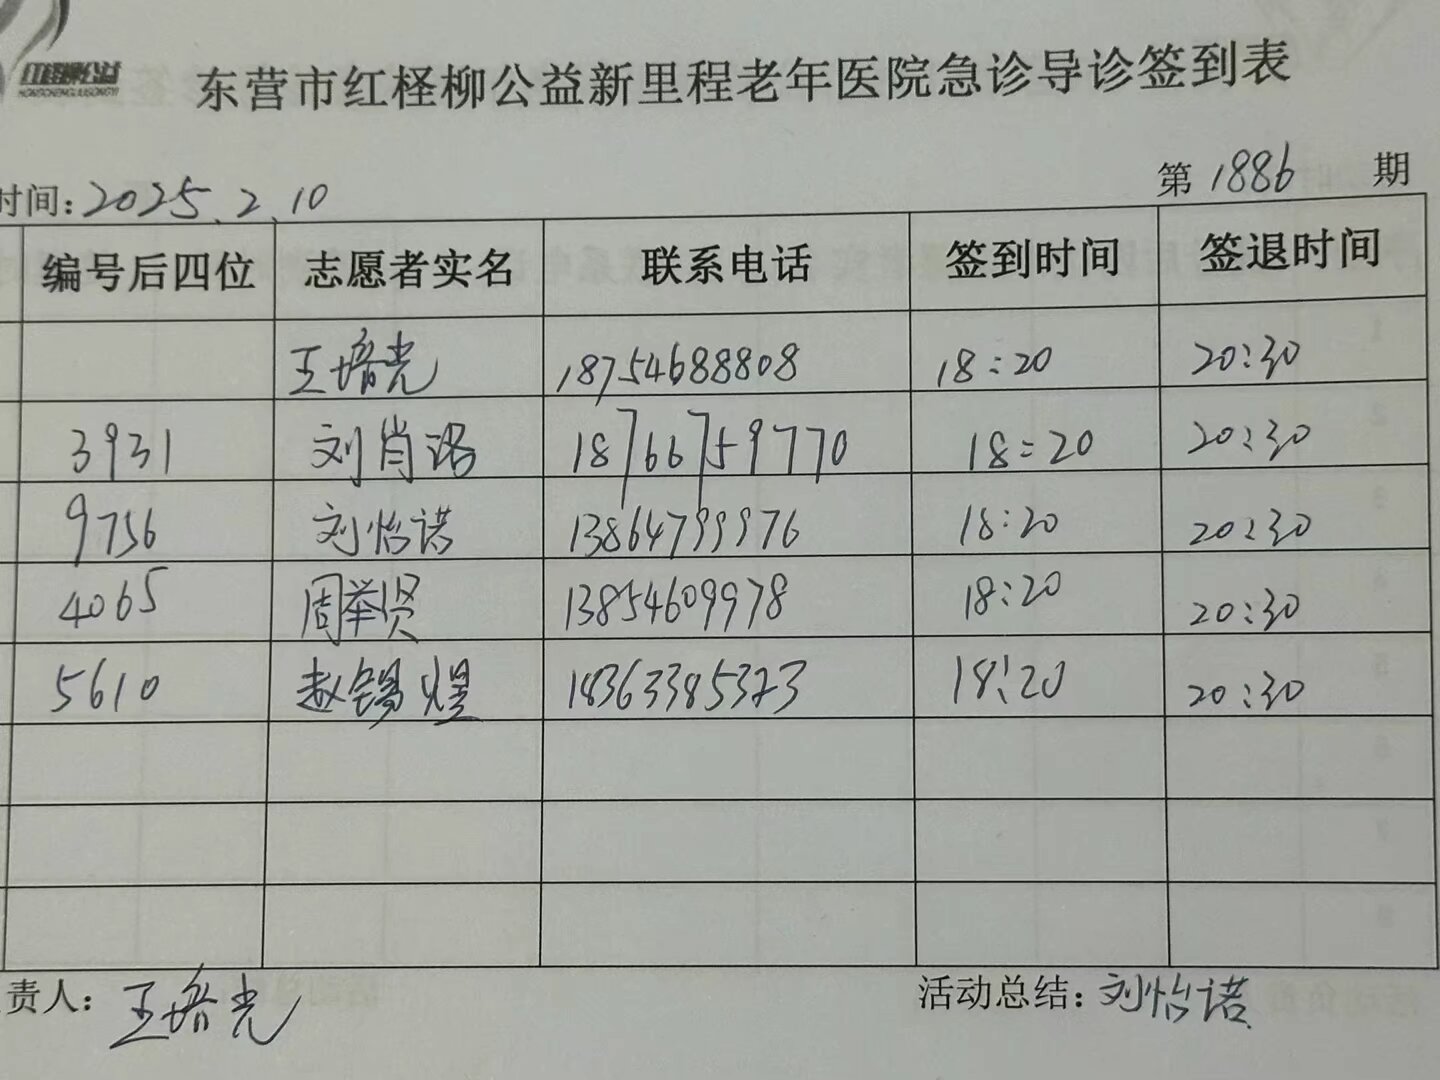 东营市红柽柳公益新里程老年医院急诊导诊签到表
时间:2025.2.10 第1886期
编号后四位 志愿者实名 联系电话 签到时间 签退时间
王培光 18754688808 18:20 20:30
3931 刘肖洛 18766759770 18:20 20:30
9756 刘怡诺 13864799976 18:20 20:30
4065 周举贤 13854609978 18:20 20:30
5610 赵锡煜 18363385323 18:20 20:30
责人:王培光 活动总结:刘怡诺